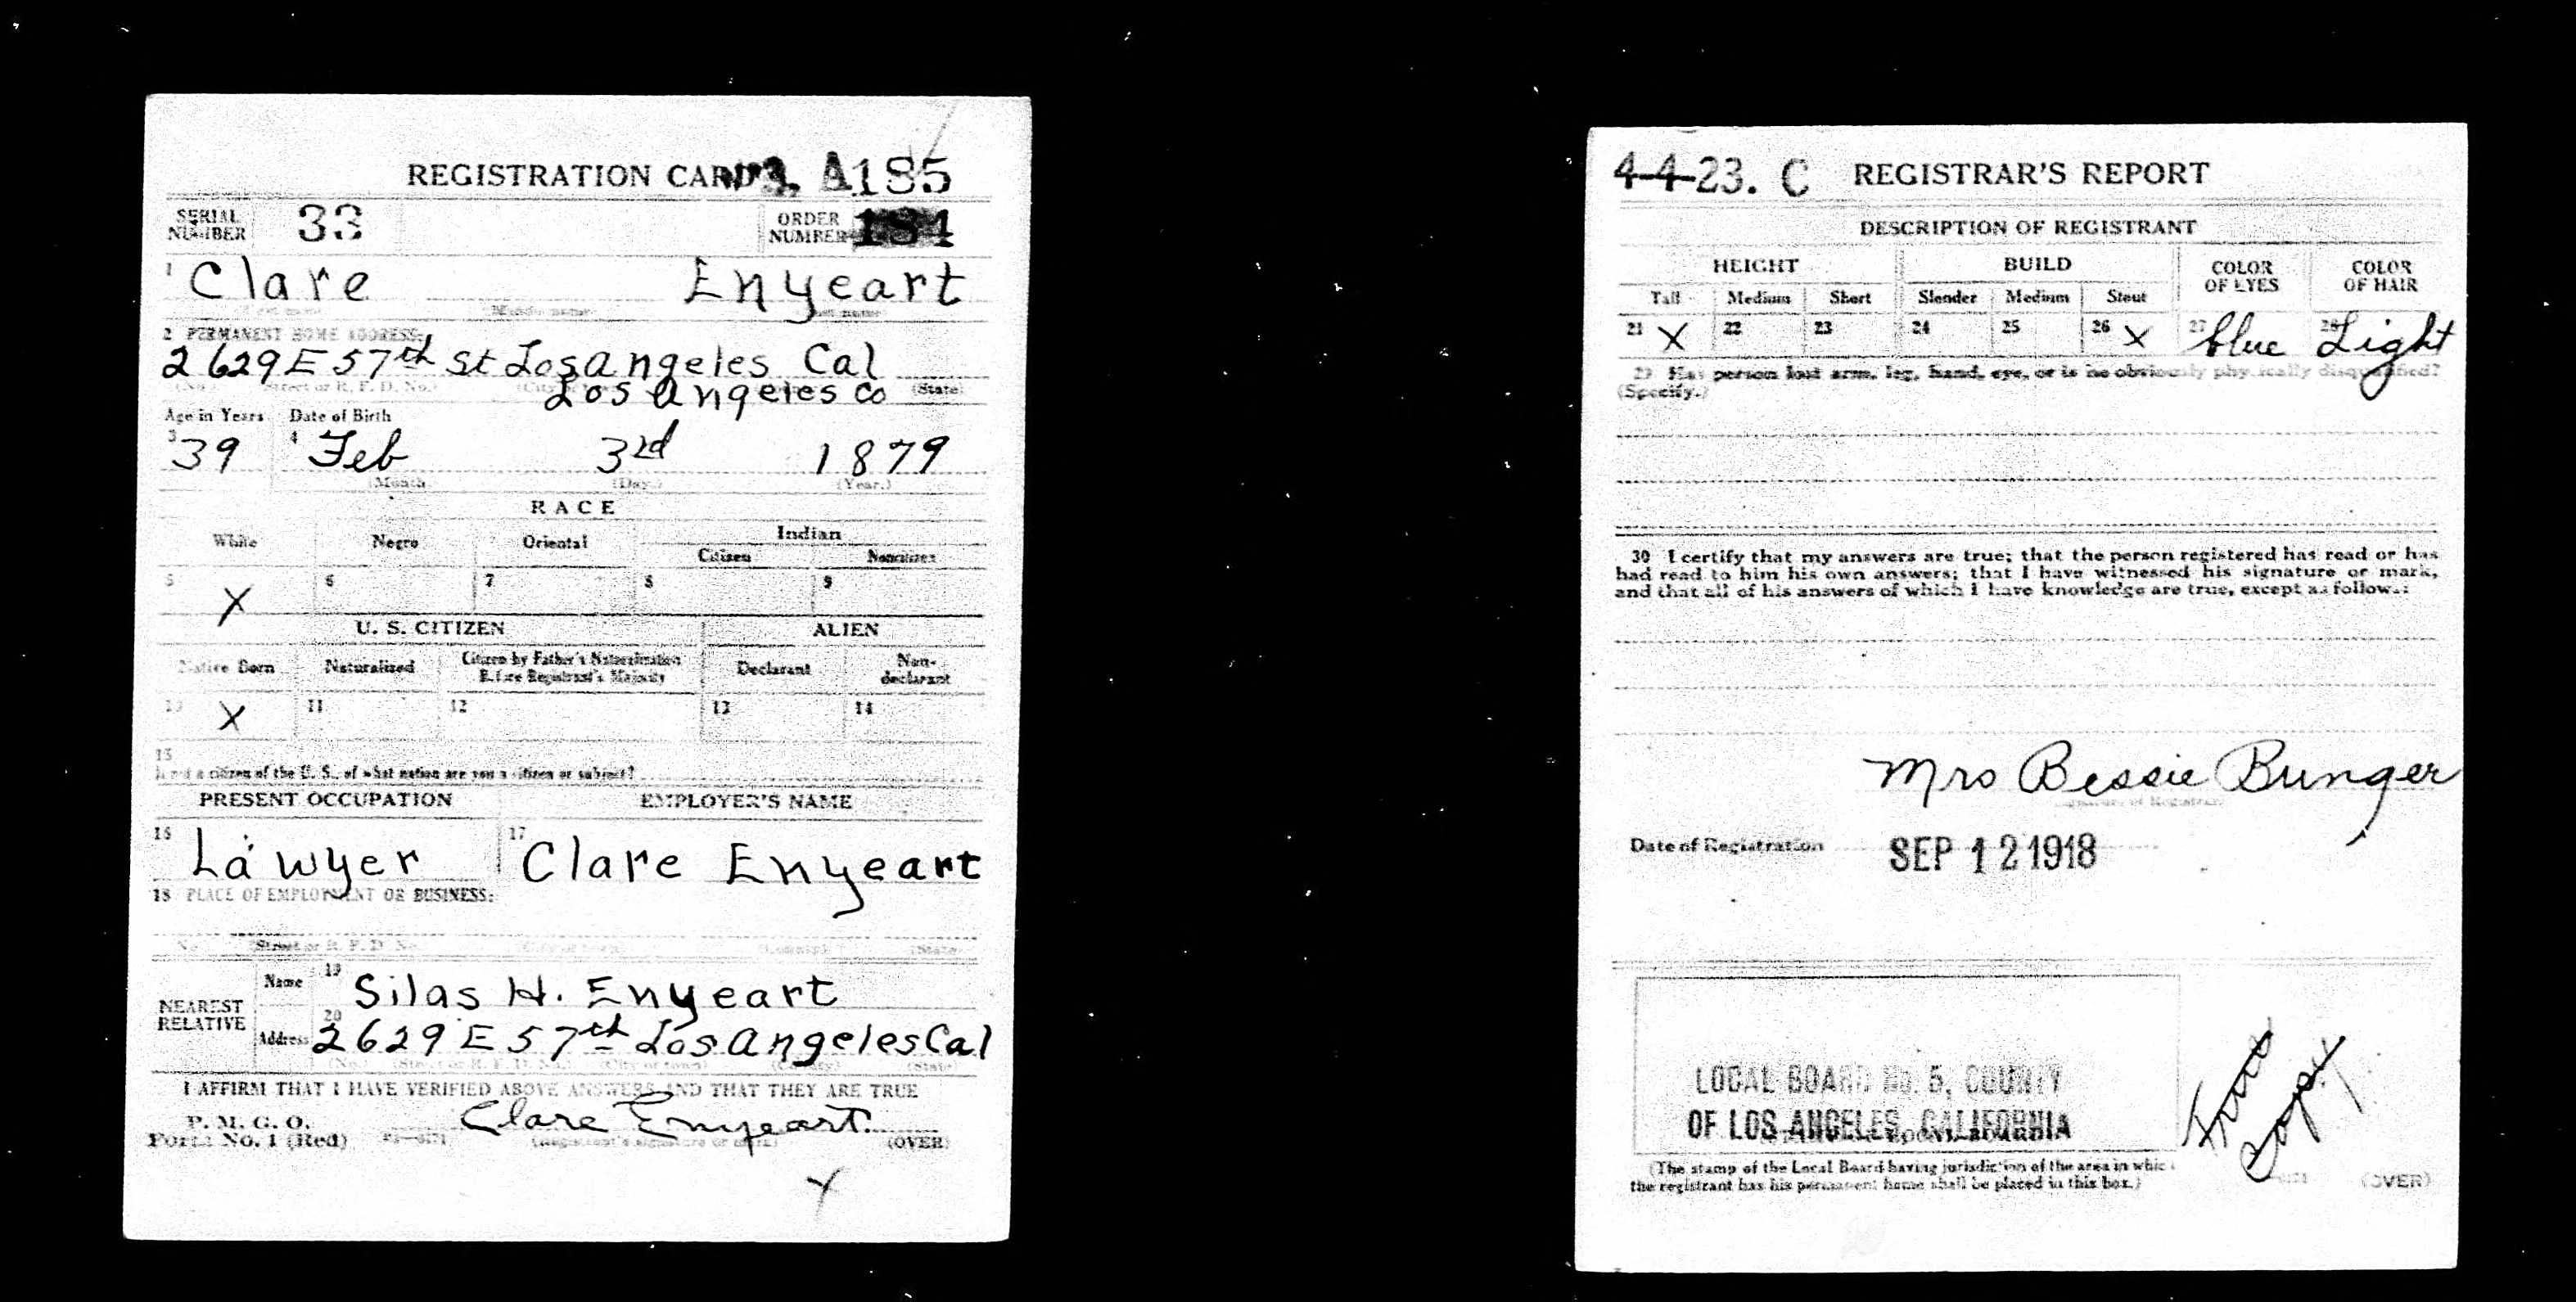 REGISTRATION CARD A185
SERIAL NUMBER 33 ORDER NUMBER 184
1 Clare Enyeart
(Middle name)
2 PERMANENT HOME ADDRESS:
2629 E 57th St Los Angeles Cal
(No.) (Street or R. F. D. No.) (State)
Los Angeles Co
Age in Years Date of Birth
3 39 4 Feb 3rd 1879
(Month.) (Day.) (Year.)
RACE
White Negro Oriental Indian
Citizen Noncitizen
5 X 6 7 8 9
U. S. CITIZEN ALIEN
Native Born Naturalized Citizen by Father's Naturalization Before Registrant's Majority Declarant Non-declarant
10 X 11 12 13 14
15
If not a citizen of the U. S., of what nation are you a citizen or subject?
PRESENT OCCUPATION EMPLOYER'S NAME
16 Lawyer 17 Clare Enyeart
18 PLACE OF EMPLOYMENT OR BUSINESS:
(No.) (Street or R. F. D. No.) (City or town) (County) (State)
NEAREST RELATIVE Name 19 Silas H. Enyeart
Address 20 2629 E 57th Los Angeles Cal
(No.) (Street or R. F. D. No.) (City or town) (County) (State)
I AFFIRM THAT I HAVE VERIFIED ABOVE ANSWERS AND THAT THEY ARE TRUE
P. M. G. O.
Form No. 1 (Red) Clare Enyeart
(Registrant's signature or mark) (OVER)
4-4-23. C REGISTRAR'S REPORT
DESCRIPTION OF REGISTRANT
HEIGHT BUILD COLOR OF EYES COLOR OF HAIR
Tall Medium Short Slender Medium Stout
21 X 22 23 24 25 26 X 27 blue 28 Light
29 Has person lost arm, leg, hand, eye, or is he obviously physically disqualified?
(Specify.)
30 I certify that my answers are true; that the person registered has read or has
had read to him his own answers; that I have witnessed his signature or mark,
and that all of his answers of which I have knowledge are true, except as follows:
Mrs Bessie Bunger
(Signature of Registrar)
Date of Registration SEP 12 1918
LOCAL BOARD No. 5, COUNTY
OF LOS ANGELES, CALIFORNIA
True
Copy
(The stamp of the Local Board having jurisdiction of the area in which
the registrant has his permanent home shall be placed in this box.)
(OVER)